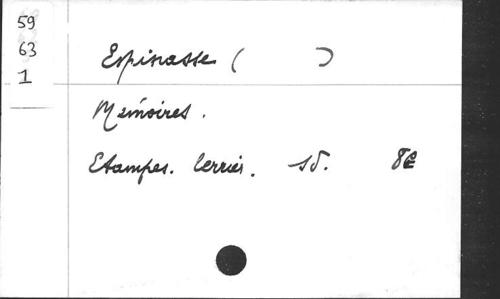 59
63
1
Espinasse ( )
Mémoires.
Etampes. Terrier. sd. 8º